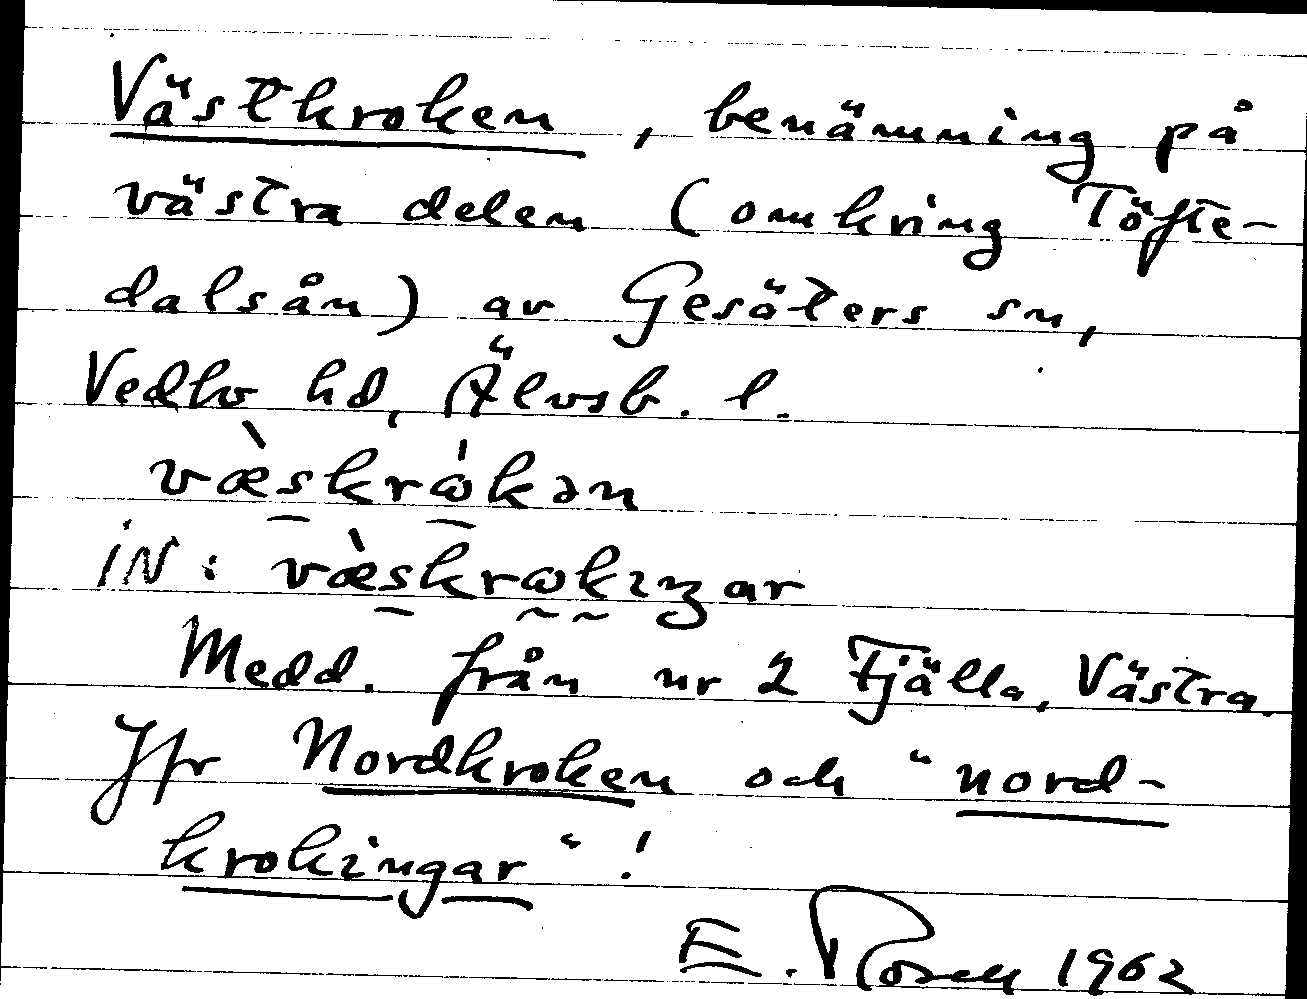 Västkroken, benämning på
västra delen (omkring Töfte-
dalsån) av Gesäters sn,
Vedbo hd, Älvsb. l.
væ̀skrωkən
iN: væ̀skrωkıŋar
Medd. från nr 2 Fjälla, Västra.
Jfr Nordkroken och "nord-
krokingar"!
E. Rosell 1962